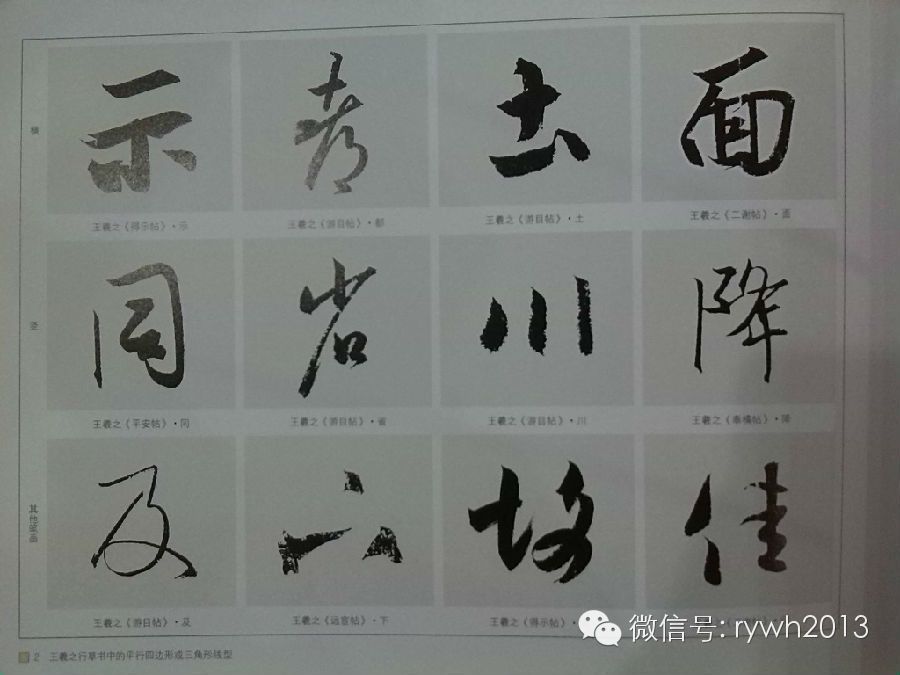 横
示 都 土 面
王羲之《得示帖》·示 王羲之《游目帖》·都 王羲之《游目帖》·土 王羲之《二谢帖》·面
竖
同 省 川 降
王羲之《平安帖》·同 王羲之《游目帖》·省 王羲之《游目帖》·川 王羲之《奉橘帖》·降
其他笔画
及 下 佳
王羲之《游目帖》·及 王羲之《远宦帖》·下 王羲之《得示帖》·
微信号: rywh2013
图 2 王羲之行草书中的平行四边形或三角形线型